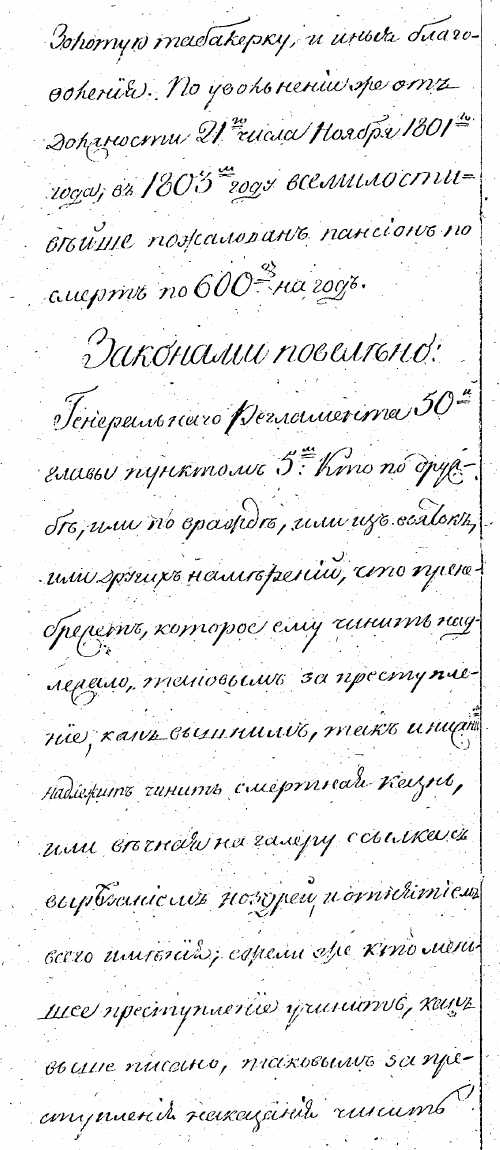 Золотую табакерку, и иныя благо-
воленія. По увольненіи же отъ
должности 21го числа Ноября 1801го
года, въ 1803м году всемилости=
вѣйше пожалованъ пансіонъ по
смерть по 600 на годъ.
Законами повелѣно:
Генеральнаго Регламента 50й
главы пунктомъ 5м: Кто по друж-
бѣ, или по враждѣ, или изъ взятокъ,
или другихъ намѣреній, что прене-
брежетъ, которое ему чинить над-
лежало, таковымъ за преступле-
ніе, какъ вышнимъ, такъ и нижни
надлежитъ чинить смертная казнь,
или вѣчная на галеру ссылка съ
вырѣзаніемъ ноздрей, и отнятіемъ
всего имѣнія; ежели же кто мень-
шее преступленіе учинитъ, какъ
выше писано, таковымъ за пре-
ступленія наказанія чинить